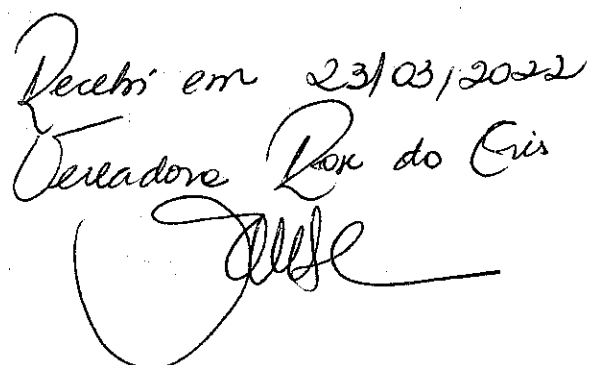 Recebi em 23/03/2022
Vereadora Rose do Cris